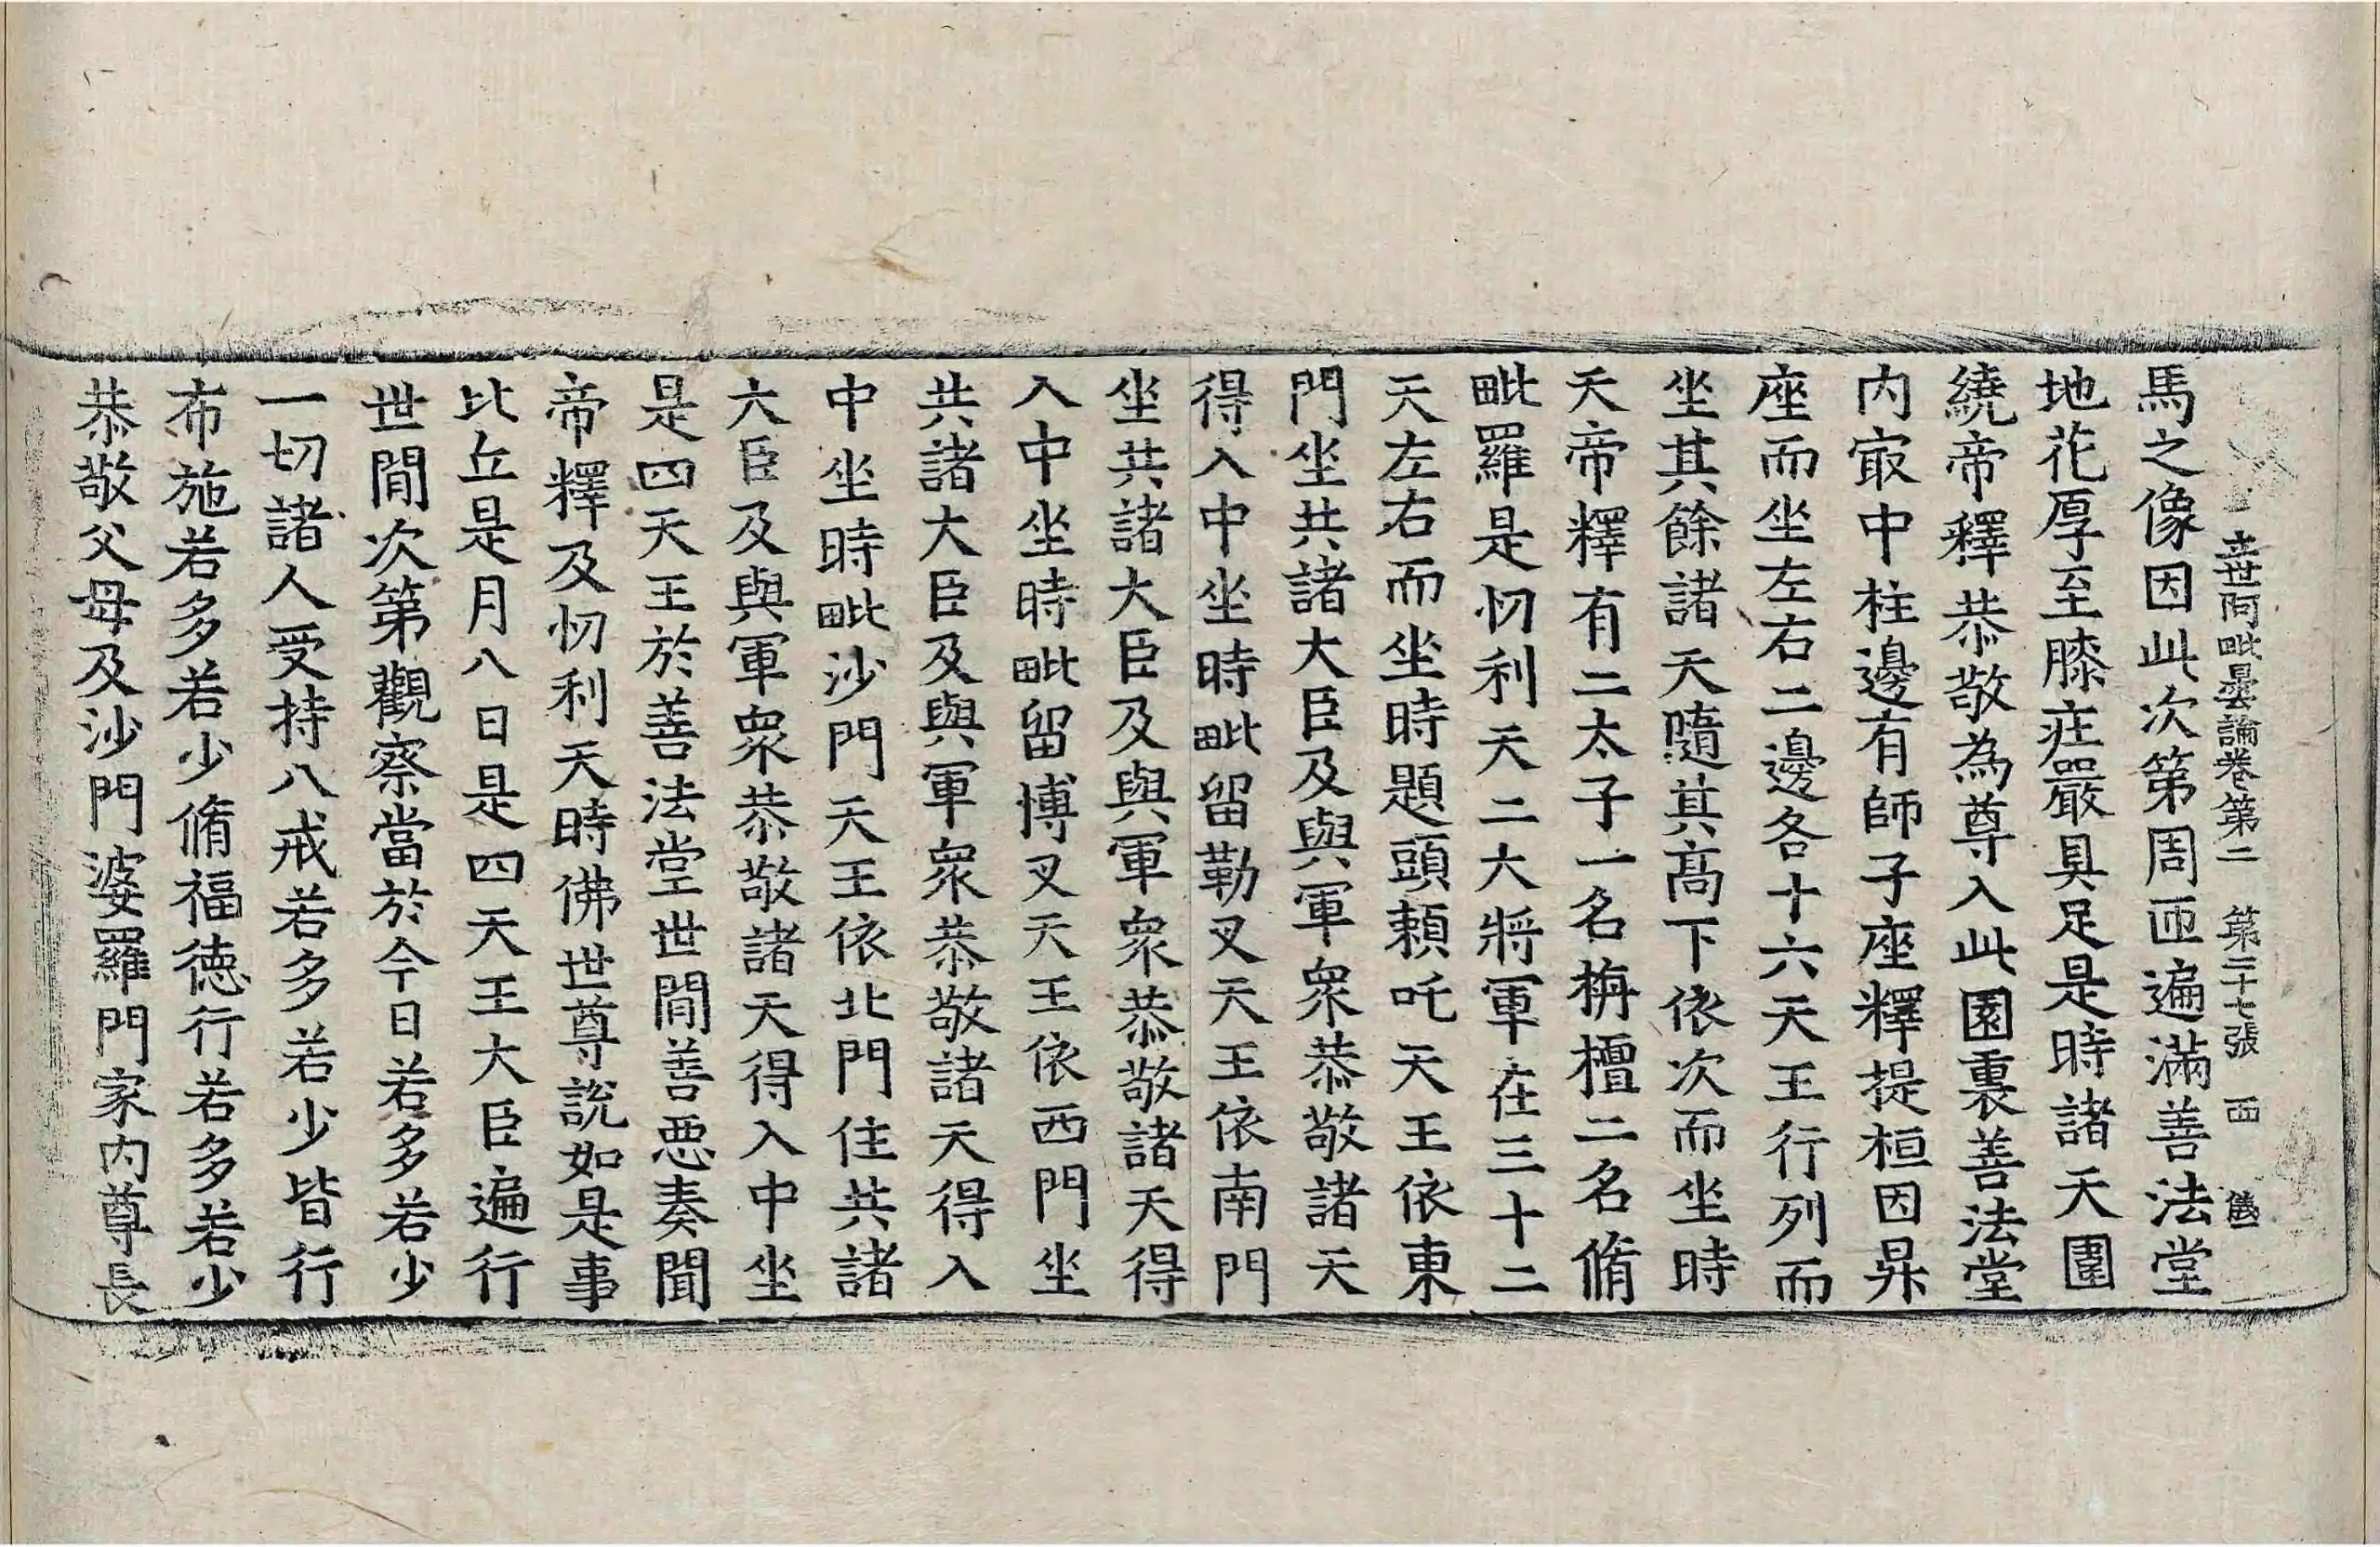 立世阿毗曇論卷第二 第二十七張 西
馬之像因此次第周迊遍滿善法堂
地花厚至膝庄嚴具足是時諸天圍
繞帝釋恭敬為尊入此園裏善法堂
内㝡中柱邊有師子座釋提桓因昇
座而坐左右二邊各十六天王行列而
坐其餘諸天隨其髙下依次而坐時
天帝釋有二太子一名栴檀二名脩
毗羅是忉利天二大將軍在三十二
天左右而坐時題頭頼吒天王依東
門坐共諸大臣及與軍衆恭敬諸天
得入中坐時毗留勒叉天王依南門
坐共諸大臣及與軍衆恭敬諸天得
入中坐時毗留博叉天王依西門坐
共諸大臣及與軍衆恭敬諸天得入
中坐時毗沙門天王依北門住共諸
大臣及與軍衆恭敬諸天得入中坐
是四天王於善法堂世間善惡奏聞
帝釋及忉利天時佛世尊說如是事
比丘是月八日是四天王大臣遍行
世間次第觀察當於今日若多若少
一切諸人受持八戒若多若少皆行
布施若多若少脩福德行若多若少
恭敬父母及沙門婆羅門家内尊長